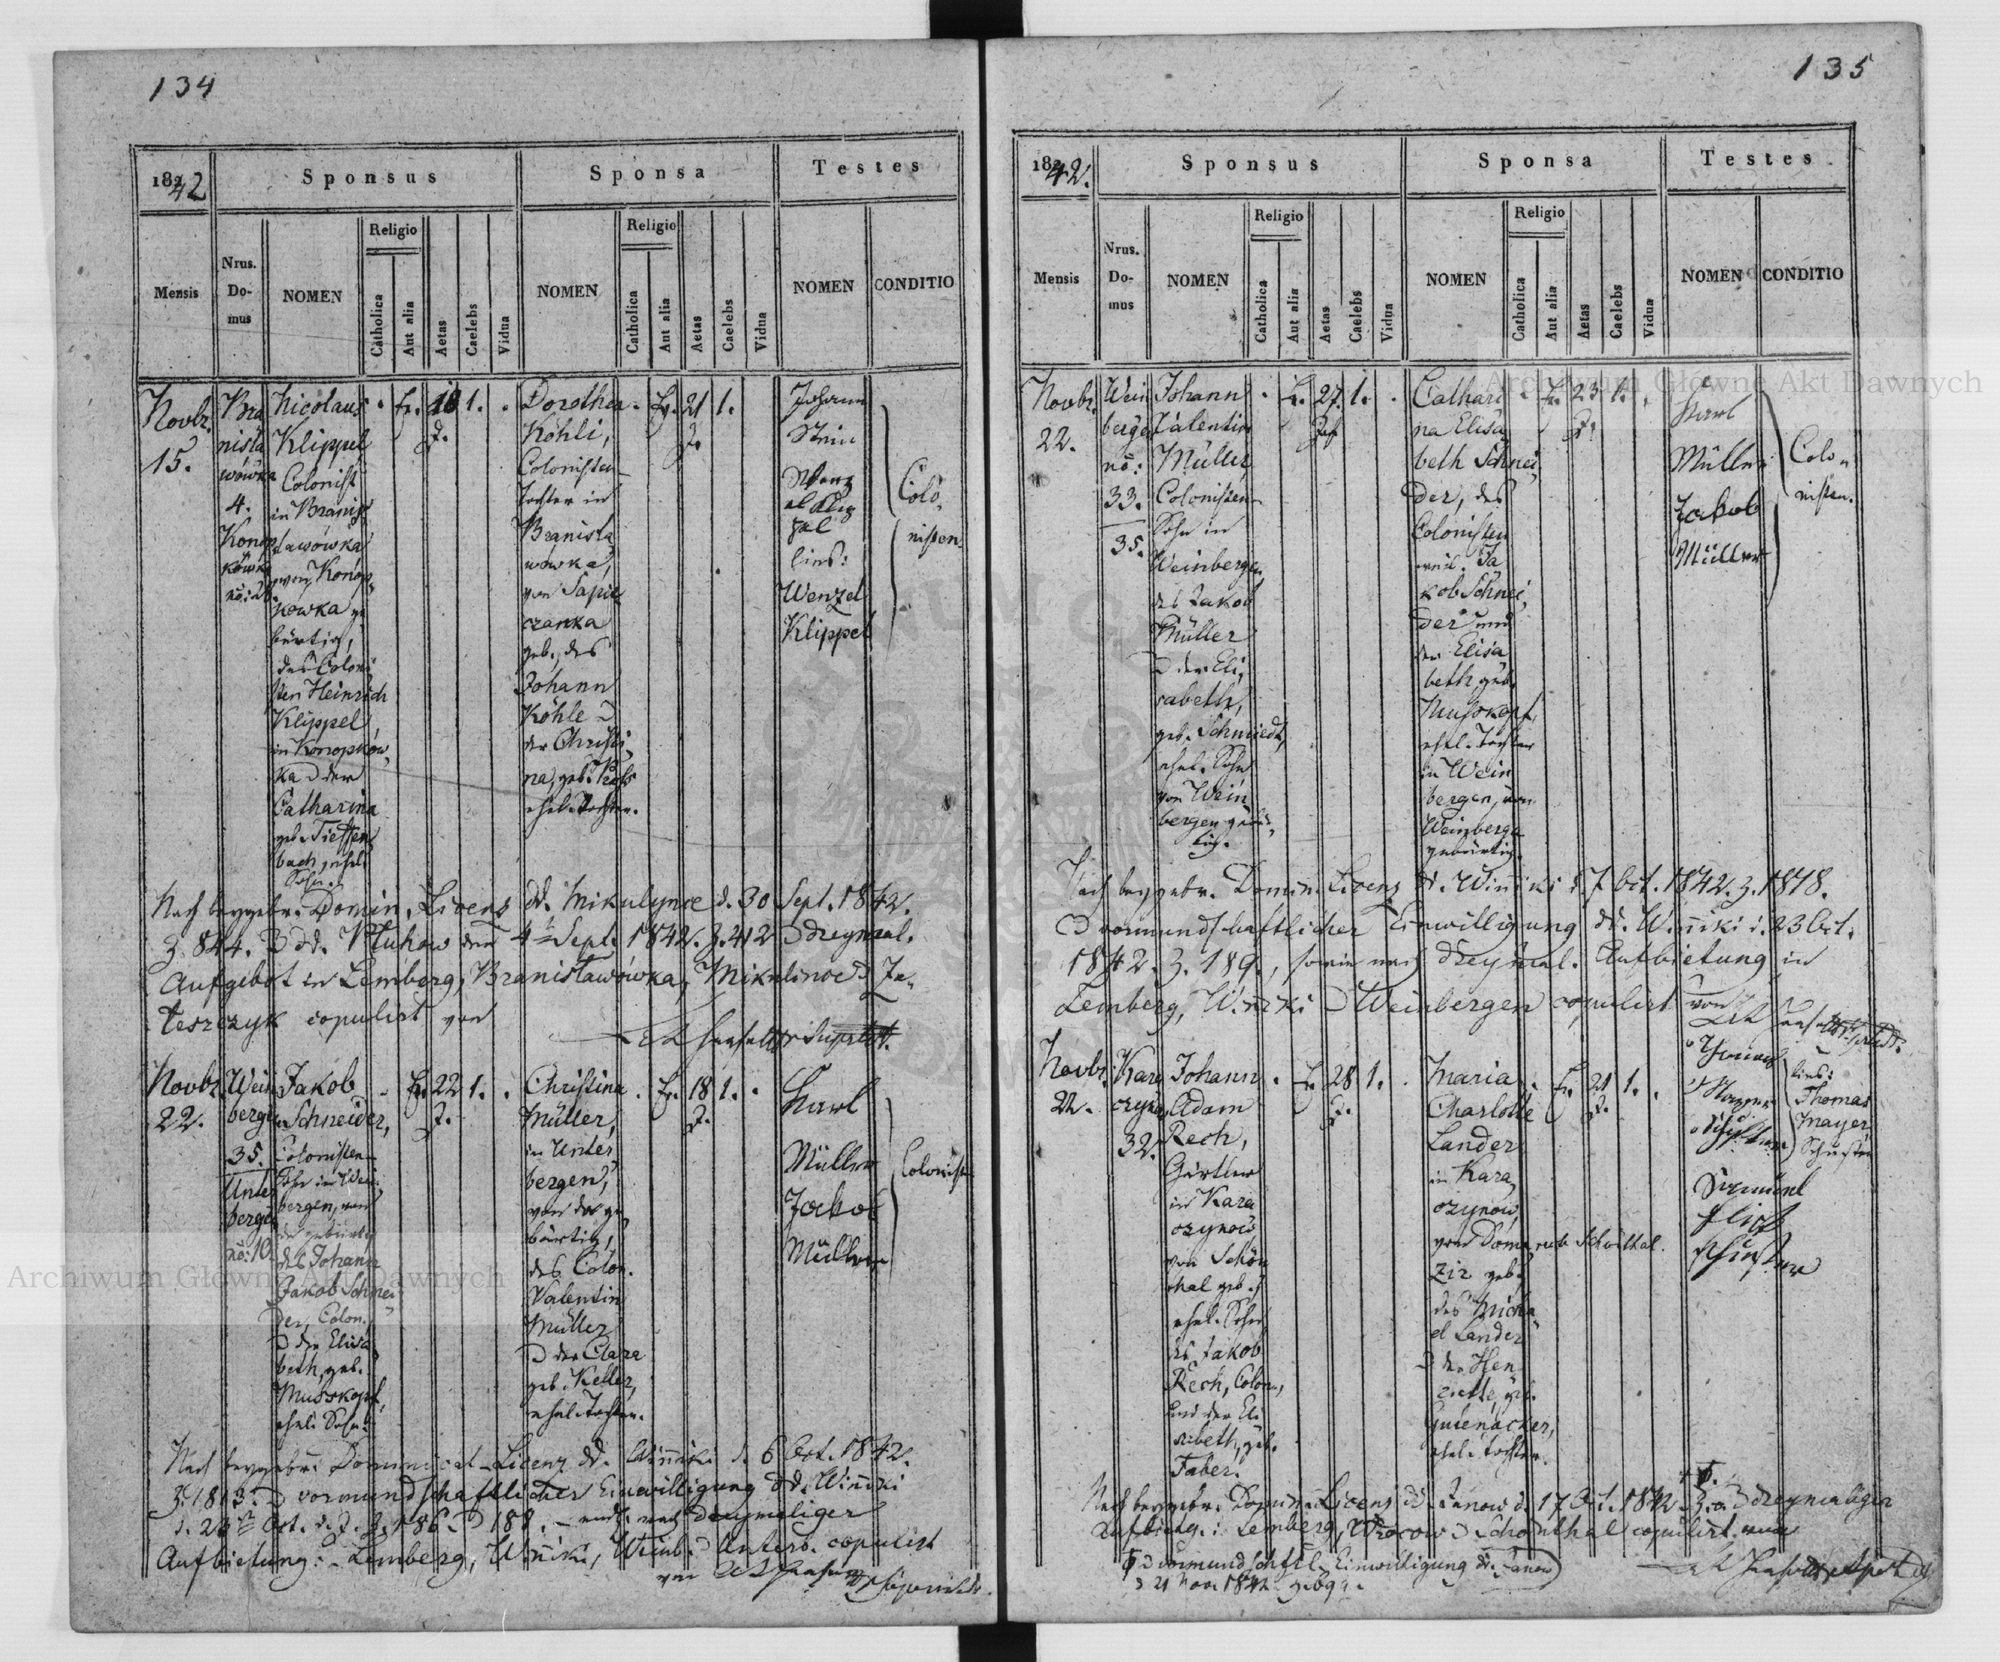 134
1842
Sponsus
Sponsa
Testes
Mensis
Nrus. Do- mus
NOMEN
Religio
Catholica
Aut alia
Aetas
Caelebs
Vidua
NOMEN
Religio
Catholica
Aut alia
Aetas
Caelebs
Vidua
NOMEN
CONDITIO
Novbr.
15.
Bra
nisla
wówka
4.
Konop
kówka
Nicolaus
Klippel
Colonist
in Branis
lawówka
von Konop
kowka ge
bürtig,
des Coloni
sten Heinrich
Klippel,
in Konopków
ka & der
Catharina
geb. Tieffen
bach, ehel.
Sohn.
Ev.
18
J.
1.
Dorothea
Köhli,
Colonisten
tochter in
Branisla
wowka,
von Sapie
czanka
geb., des
Johann
Köhle &
der Christi
na, geb.
ehel. Tochter.
Ev.
21
J.
1.
Johann
Stein
lies:
Wenzel
Klippel
Colo,
nisten.
Nach beygebr. Domin. Licenz dd. Mikulynce d. 30 Sept. 1842.
Z. 844. & dd. Pluhow den 4ten Sept. 1842. Z. 412 & dreymal.
Aufgebot in Lemberg, Branisławówka, Mikulince & Ja-
teszczyk copulirt von
Novbr.
22.
Wein
bergen
35.
Unter
bergen
No: 10.
Jakob
Schneider,
Colonisten
Sohn in Wein
bergen, von
da gebürtig
des Johann
Jakob Schnei
der, Colon.
& der Elisa
beth, geb.
Musskopf,
ehel. Sohn.
Ev.
22
J.
1.
Christina
Müller,
in Unter
bergen,
von da ge
bürtig,
des Colon.
Valentin
Müller
& der Clara
geb. Keller,
ehel. Tochter.
Ev.
18
J.
1.
Karl
Müller
Jakob
Müller
Colonist
Nach beygebr. Dominical-Licenz dd. Winniki d. 6 Oct. 1842.
Z. 1813. & vormundschaftlicher Einwilligung dd. Winniki
Oct. d. J. Z. 186. & 188. nach dreymaliger
Aufbietung: Lemberg, Winiki, Weinb. & Unterb. copulirt
von
135
1842.
Sponsus
Sponsa
Testes
Mensis
Nrus. Do- mus
NOMEN
Religio
Catholica
Aut alia
Aetas
Caelebs
Vidua
NOMEN
Religio
Catholica
Aut alia
Aetas
Caelebs
Vidua
NOMEN
CONDITIO
Novbr.
22.
Wein
bergen
no:
33.
35.
Johann
Valentin
Müller
Colonisten
Sohn in
Weinbergen
des Jakob
Müller
& der Eli,
sabeth,
geb. Schmiedt,
ehel. Sohn
von Wein
bergen gebür,
tig.
27.
1.
Cathari
na Elisa
beth Schnei
der, des
Colonisten
Ja
kob Schnei,
der und
der Elisa
beth geb.
Musskopf,
ehel. Tochter
in Wein
bergen, von
Weinbergen
gebürtig.
Ev.
23
J.
1.
Karl
Müller
Jakob
Müller
Colo,
nisten.
Nach beygebr. Domin. Licenz dd. Winniki d. 7 Oct. 1842. Z. 1818.
& vormundschaftlicher Einwilligung dd. Winniki d. 23 Oct.
1842. Z. 189., sowie nach dreymal. Aufbietung in
Lemberg, Winiki & Weinbergen copulirt von
Novbr.
22.
Kara
czynow
32.
Johann
Adam
Rech,
Gärtler
in Kara
czynow
von Schön
thal geb.
ehel. Sohn
des Jakob
Rech, Colon.,
und der Eli
sabeth, geb.
Faber.
Ev.
28
J.
1.
Maria
Charlotte
Lander
in Kara
czynow,
von Dom
zir geb.
recte Schönthal.
des Micha
el Lander
& der Hen
riette, geb.
Gutenacker,
ehel. Tochter.
Ev.
21
J.
1.
lies:
Thomas
Mayer
Schuster
Schuster
Nach beygebr. Domin. Licenz dd. Janow d. 17 Oct. 1842 & dreymaliger
Aufbietg. i. Lemberg, Wrocow & Schönthal copulirt von
& vormundschftl. Einwilligung dd. Janow
d. 21 Nov. 1842
Archiwum Główne Akt Dawnych
Archiwum Główne Akt Dawnych